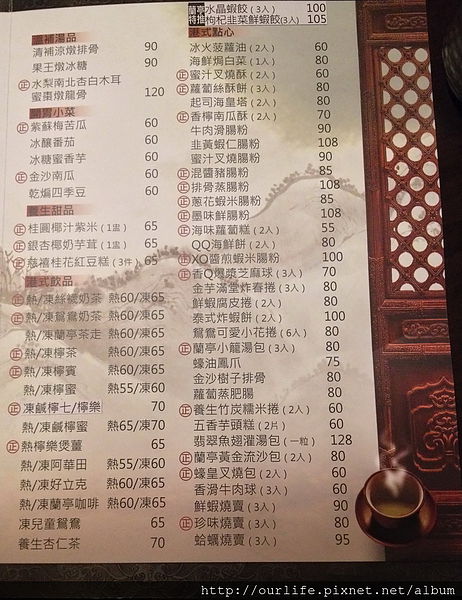 滋補湯品
清補涼燉排骨 90
果王燉冰糖 90
正 水梨南北杏白木耳
蜜棗燉龍骨 120
開胃小菜
正 紫蘇梅苦瓜 60
冰釀番茄 60
冰糖蜜香芋 60
正 金沙南瓜 60
乾煸四季豆 60
養生甜品
正 桂圓椰汁紫米(1盅) 65
正 銀杏椰奶芋茸(1盅) 65
正 慈禧桂花紅豆糕(3件) 65
港式飲品
正 熱/凍絲襪奶茶 熱60/凍65
正 熱/凍鴛鴦奶茶 熱60/凍65
熱/凍蘭亭茶走 熱60/凍65
正 熱/凍檸茶 熱60/凍65
正 熱/凍檸賓 熱60/凍65
熱/凍檸蜜 熱55/凍60
正 凍鹹檸七/檸樂 70
熱/凍鹹檸蜜 熱65/凍70
正 熱檸樂煲薑 65
熱/凍阿華田 熱55/凍60
熱/凍好立克 熱60/凍65
熱/凍蘭亭咖啡 熱60/凍65
凍兒童鴛鴦 65
養生杏仁茶 70
蘭亭特推
水晶蝦餃(3入) 100
枸杞韭菜鮮蝦餃(3入) 105
港式點心
冰火菠蘿油(2入) 60
海鮮焗白菜(1入) 80
正 蜜汁叉燒酥(2入) 60
正 蘿蔔絲酥餅(3入) 80
起司海皇塔(2入) 80
正 香檸南瓜酥(2入) 70
牛肉滑腸粉 90
韭黃蝦仁腸粉 108
蜜汁叉燒腸粉 90
正 混醬豬腸粉 85
正 排骨蒸腸粉 108
正 蔥花蝦米腸粉 85
正 墨味鮮腸粉 108
正 海味蘿蔔糕(2入) 55
QQ海鮮餅(2入) 80
正 XO醬煎蝦米腸粉 100
正 香Q爆漿芝麻球(3入) 70
金芋滿堂炸春捲(3入) 80
鮮蝦腐皮捲(3入) 80
泰式炸蝦餅(2入) 100
鴛鴦可愛小花捲(6入) 60
正 蘭亭小籠湯包(3入) 80
蠔油鳳爪 75
金沙樹子排骨 80
蘿蔔蒸肥腸 80
正 養生竹炭糯米捲(2入) 60
五香芋頭糕(2片) 60
翡翠魚翅灌湯包(一粒) 128
正 蘭亭黃金流沙包(2入) 80
正 蠔皇叉燒包(2入) 60
香滑牛肉球(3入) 60
鮮蝦燒賣(3入) 90
正 珍味燒賣(3入) 80
蛤蠣燒賣(3入) 95
http://ourlife.pixnet.net/album